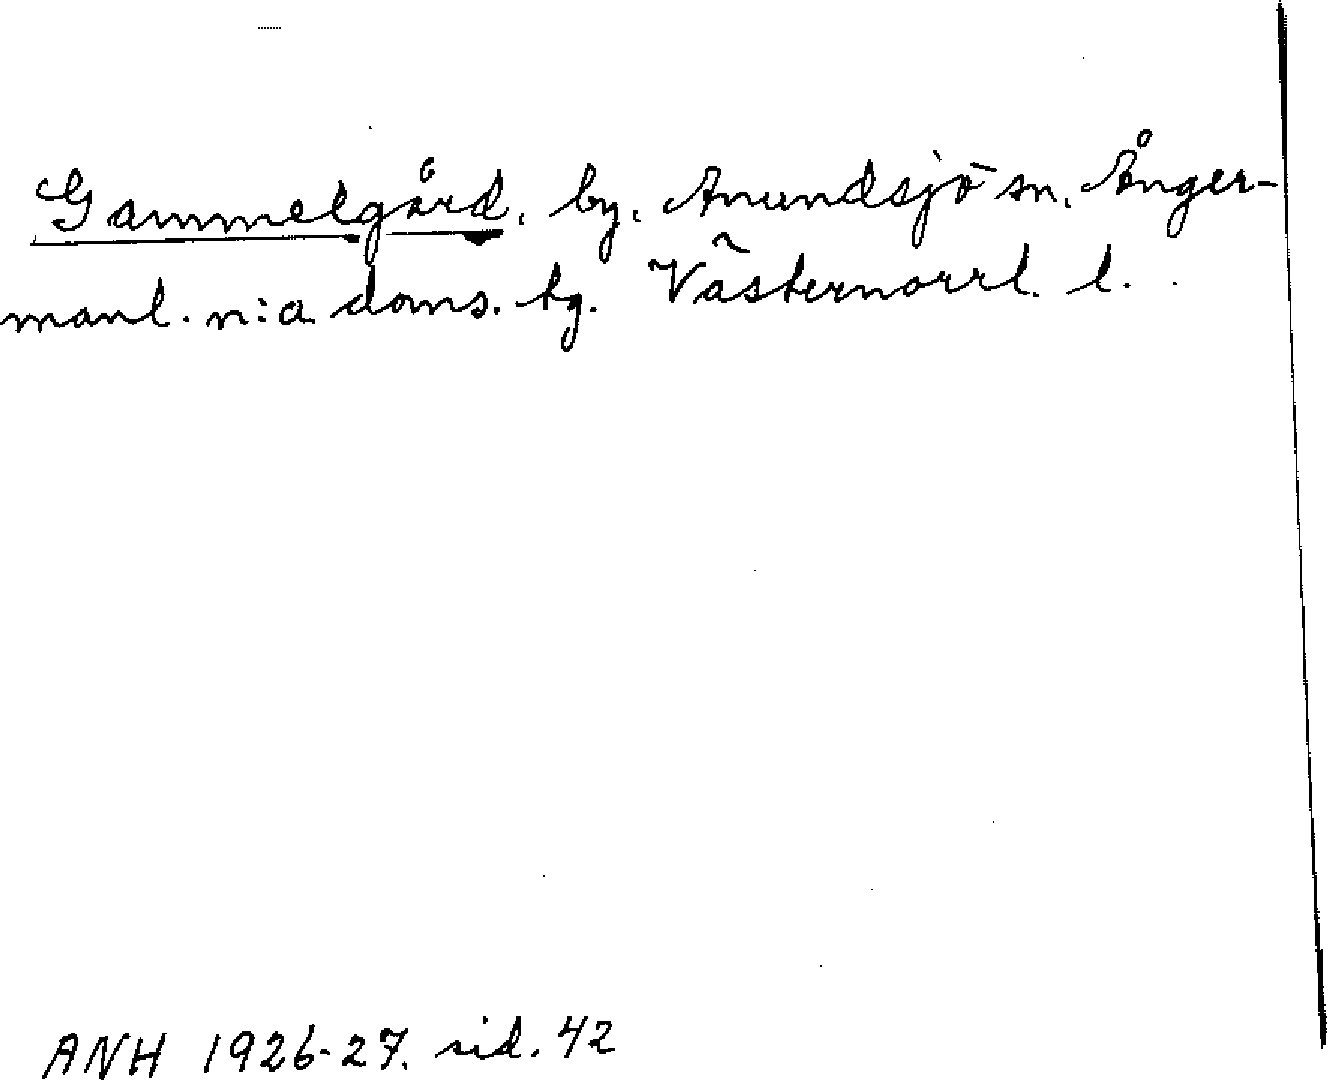 Gammelgård, by, Anundsjö sn. Ånger-
manl. n:a doms. tg. Västernorrl. l.
ANH 1926-27. sid. 42